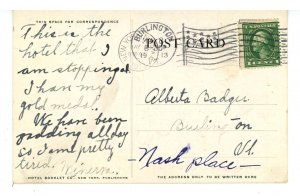 THIS SPACE FOR CORRESPONDENCE
This is the
hotel that I
am stopping at
I han my
gold medal.
We han been
gadding all day
so I am pretty
tired. Minerva.
HOTEL BOOKLET CO., NEW YORK, PUBLISHERS
BURLINGTON
1913
POST CARD
Alberta Badger
Burlington
Vt.
Nash place
THE ADDRESS ONLY TO BE WRITTEN HERE